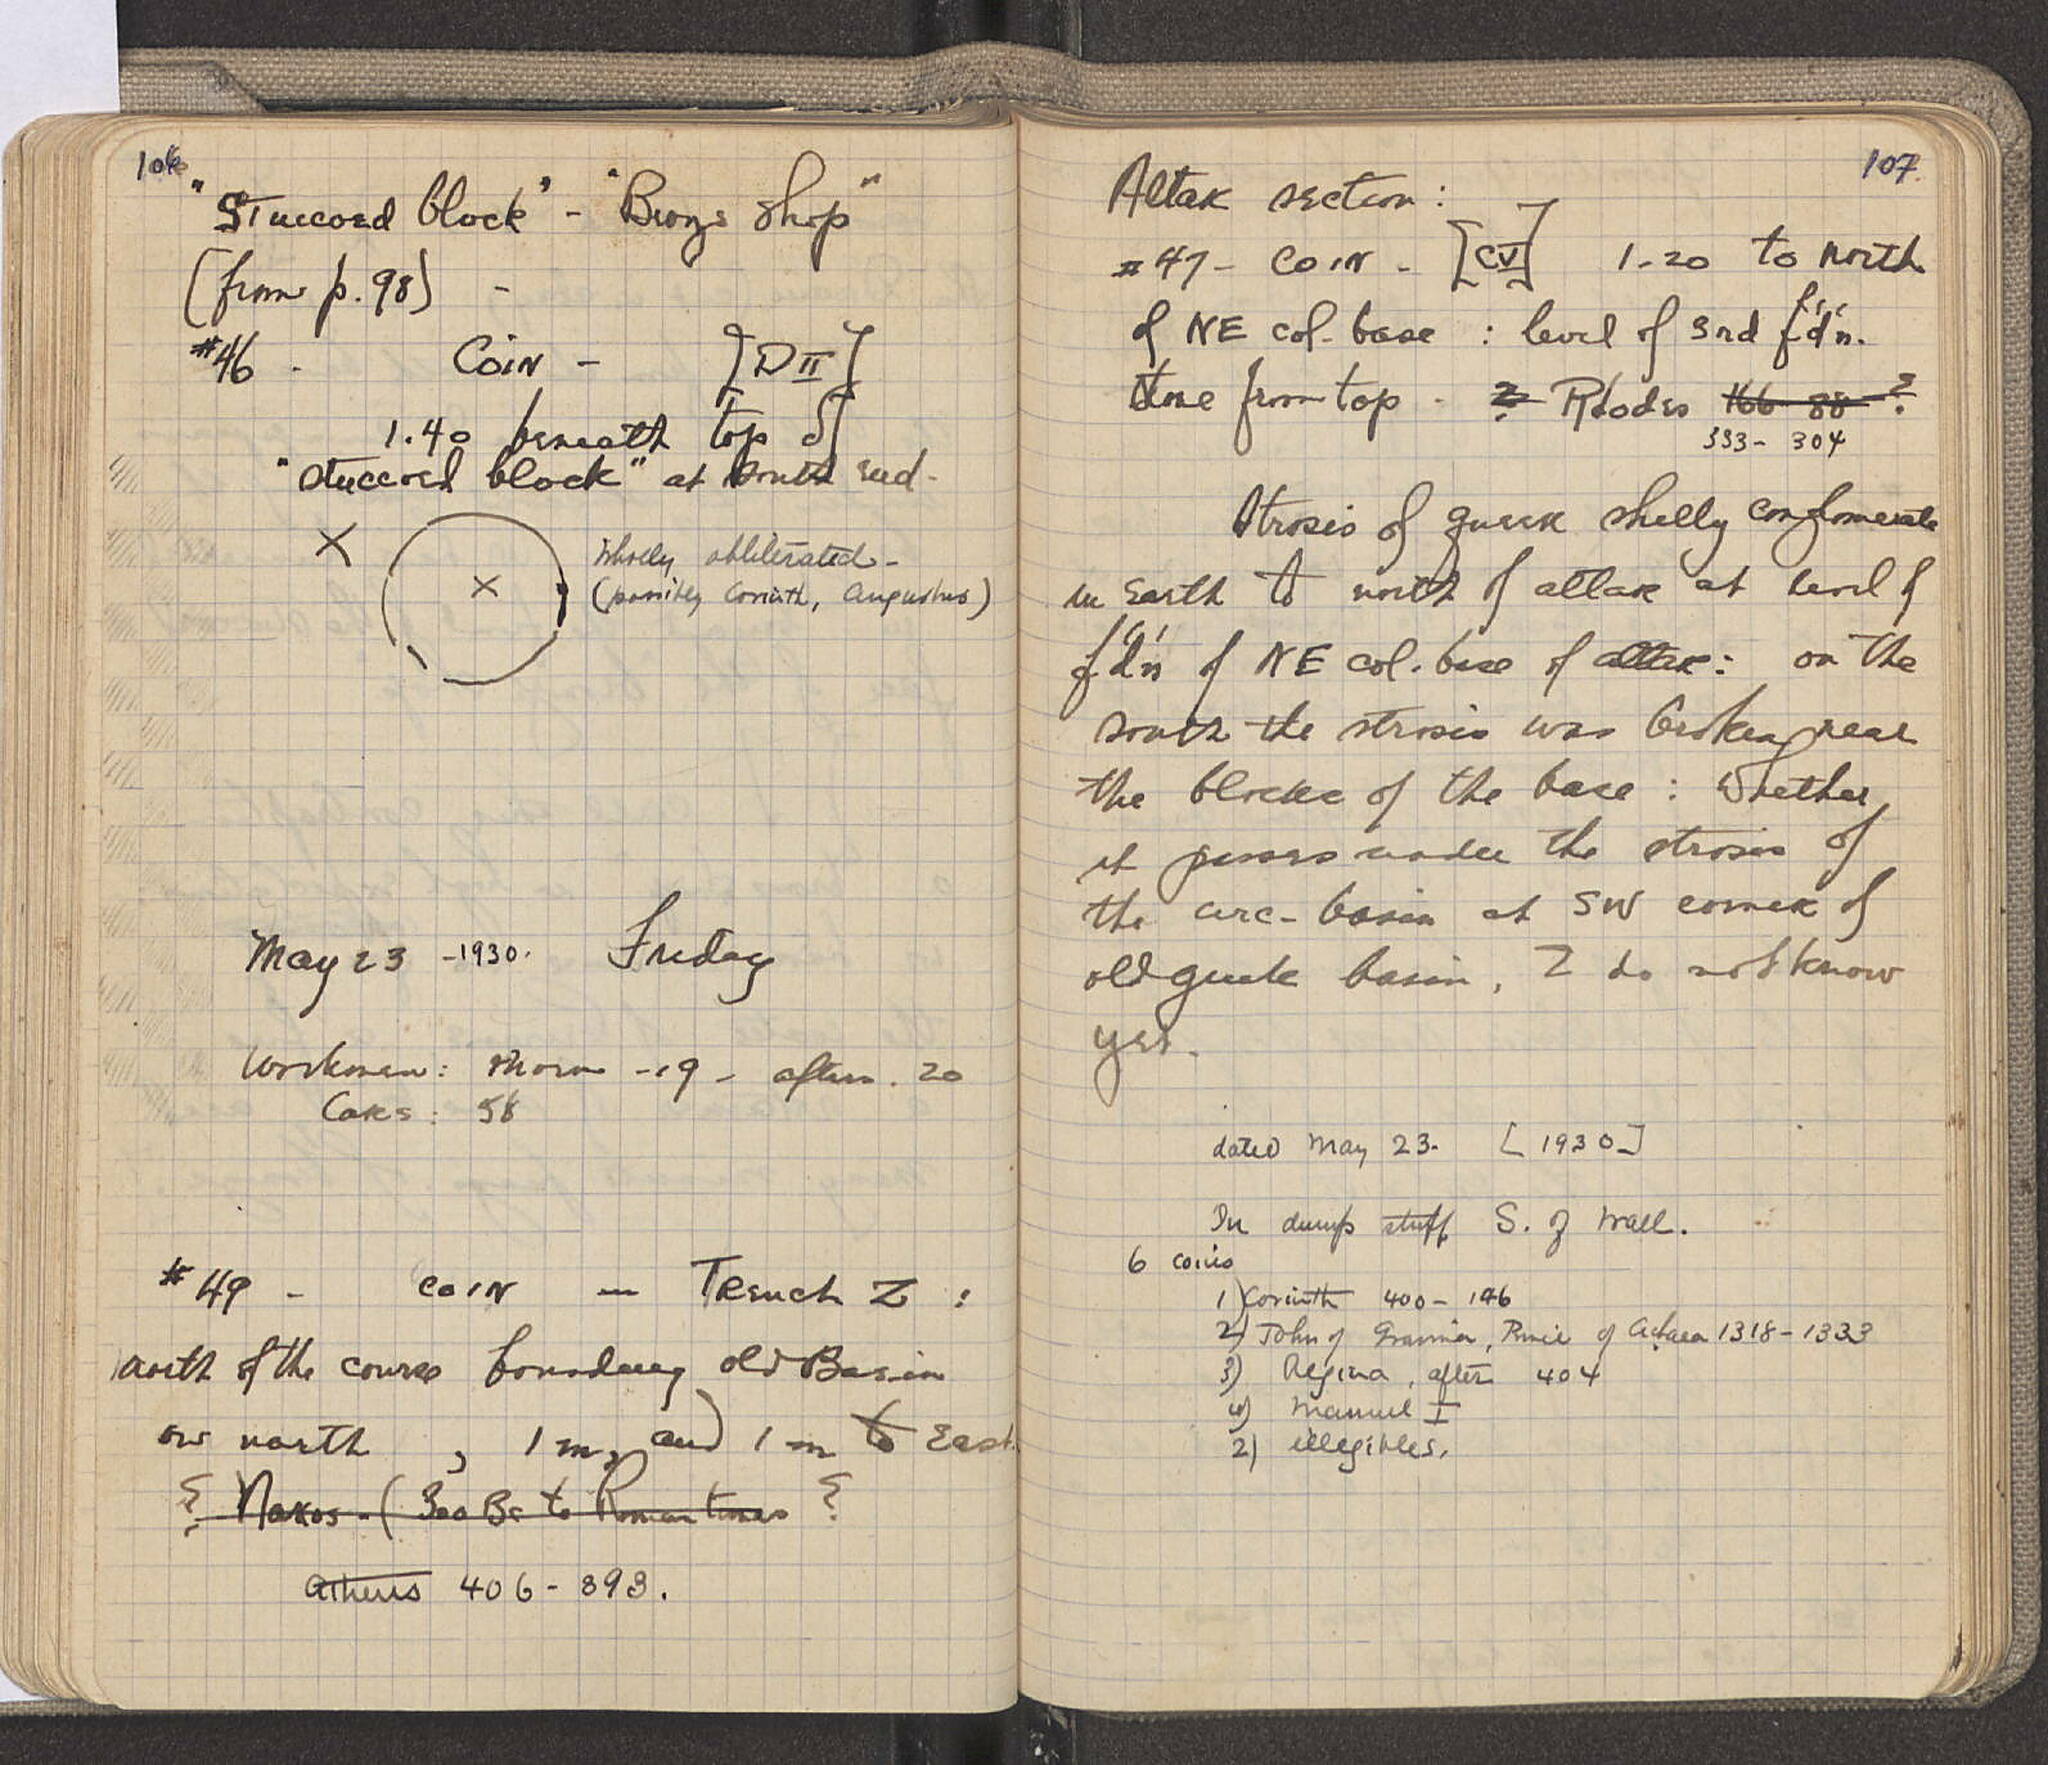 106
"Stuccoed block" - "Bronze Shop"
(from p. 98) -
#46 - Coin - [D II]
1.40 beneath top of
"stuccoed block" at south end.
X
X
Wholly obliterated -
(possibly Corinth, Augustus)
May 23 - 1930. Friday
Workmen: morn - 19 - aftern. 20
Cars: 58
#49 - coin - Trench Z :
north of the course bounding old Basin
on north , 1 m, and 1 m to East
? Naxos - (300 BC to Roman times ?
Athens 406 - 393.
107
Altar section :
#47 - Coin - [CV] 1.20 to north
of NE col. base : level of 3rd f'd'n.
stone from top - ? Rhodes 166 - 88 ?
333 - 304
Strosis of greek shelly conglomerate
in Earth to north of altar at level of
f'd'n of NE col. base of altar: on the
south the strosis was broken near
the blocks of the base : Whether
it passes under the strosis of
the circ- basin at SW corner of
old greek basin, I do not know
yet.
dated May 23. [1930]
In dump stuff S. of wall.
6 coins
1) Corinth 400 - 146
2) John of Gravina, Prince of Achaea 1318 - 1333
3) Aegina, after 404
4) Manuel I
2) illegibles.